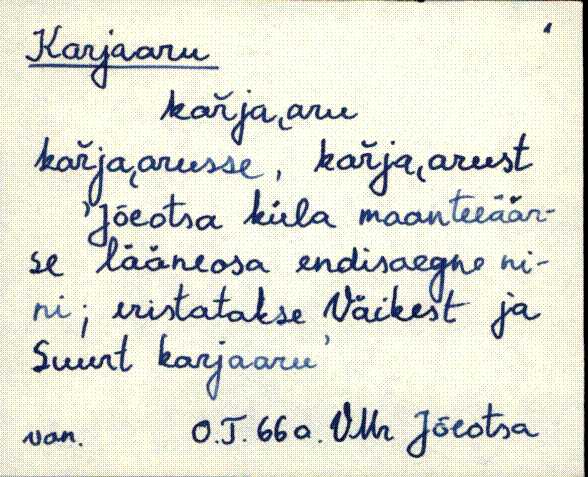 Karjaaru
kaŕja˛aru
kaŕja˛arusse, kaŕja˛arust
'Jõeotsa küla maanteeäär-
se lääneosa endisaegne ni-
mi; eristatakse Väikest ja
Suurt karjaaru'
van. O.T. 66a. VMr Jõeotsa